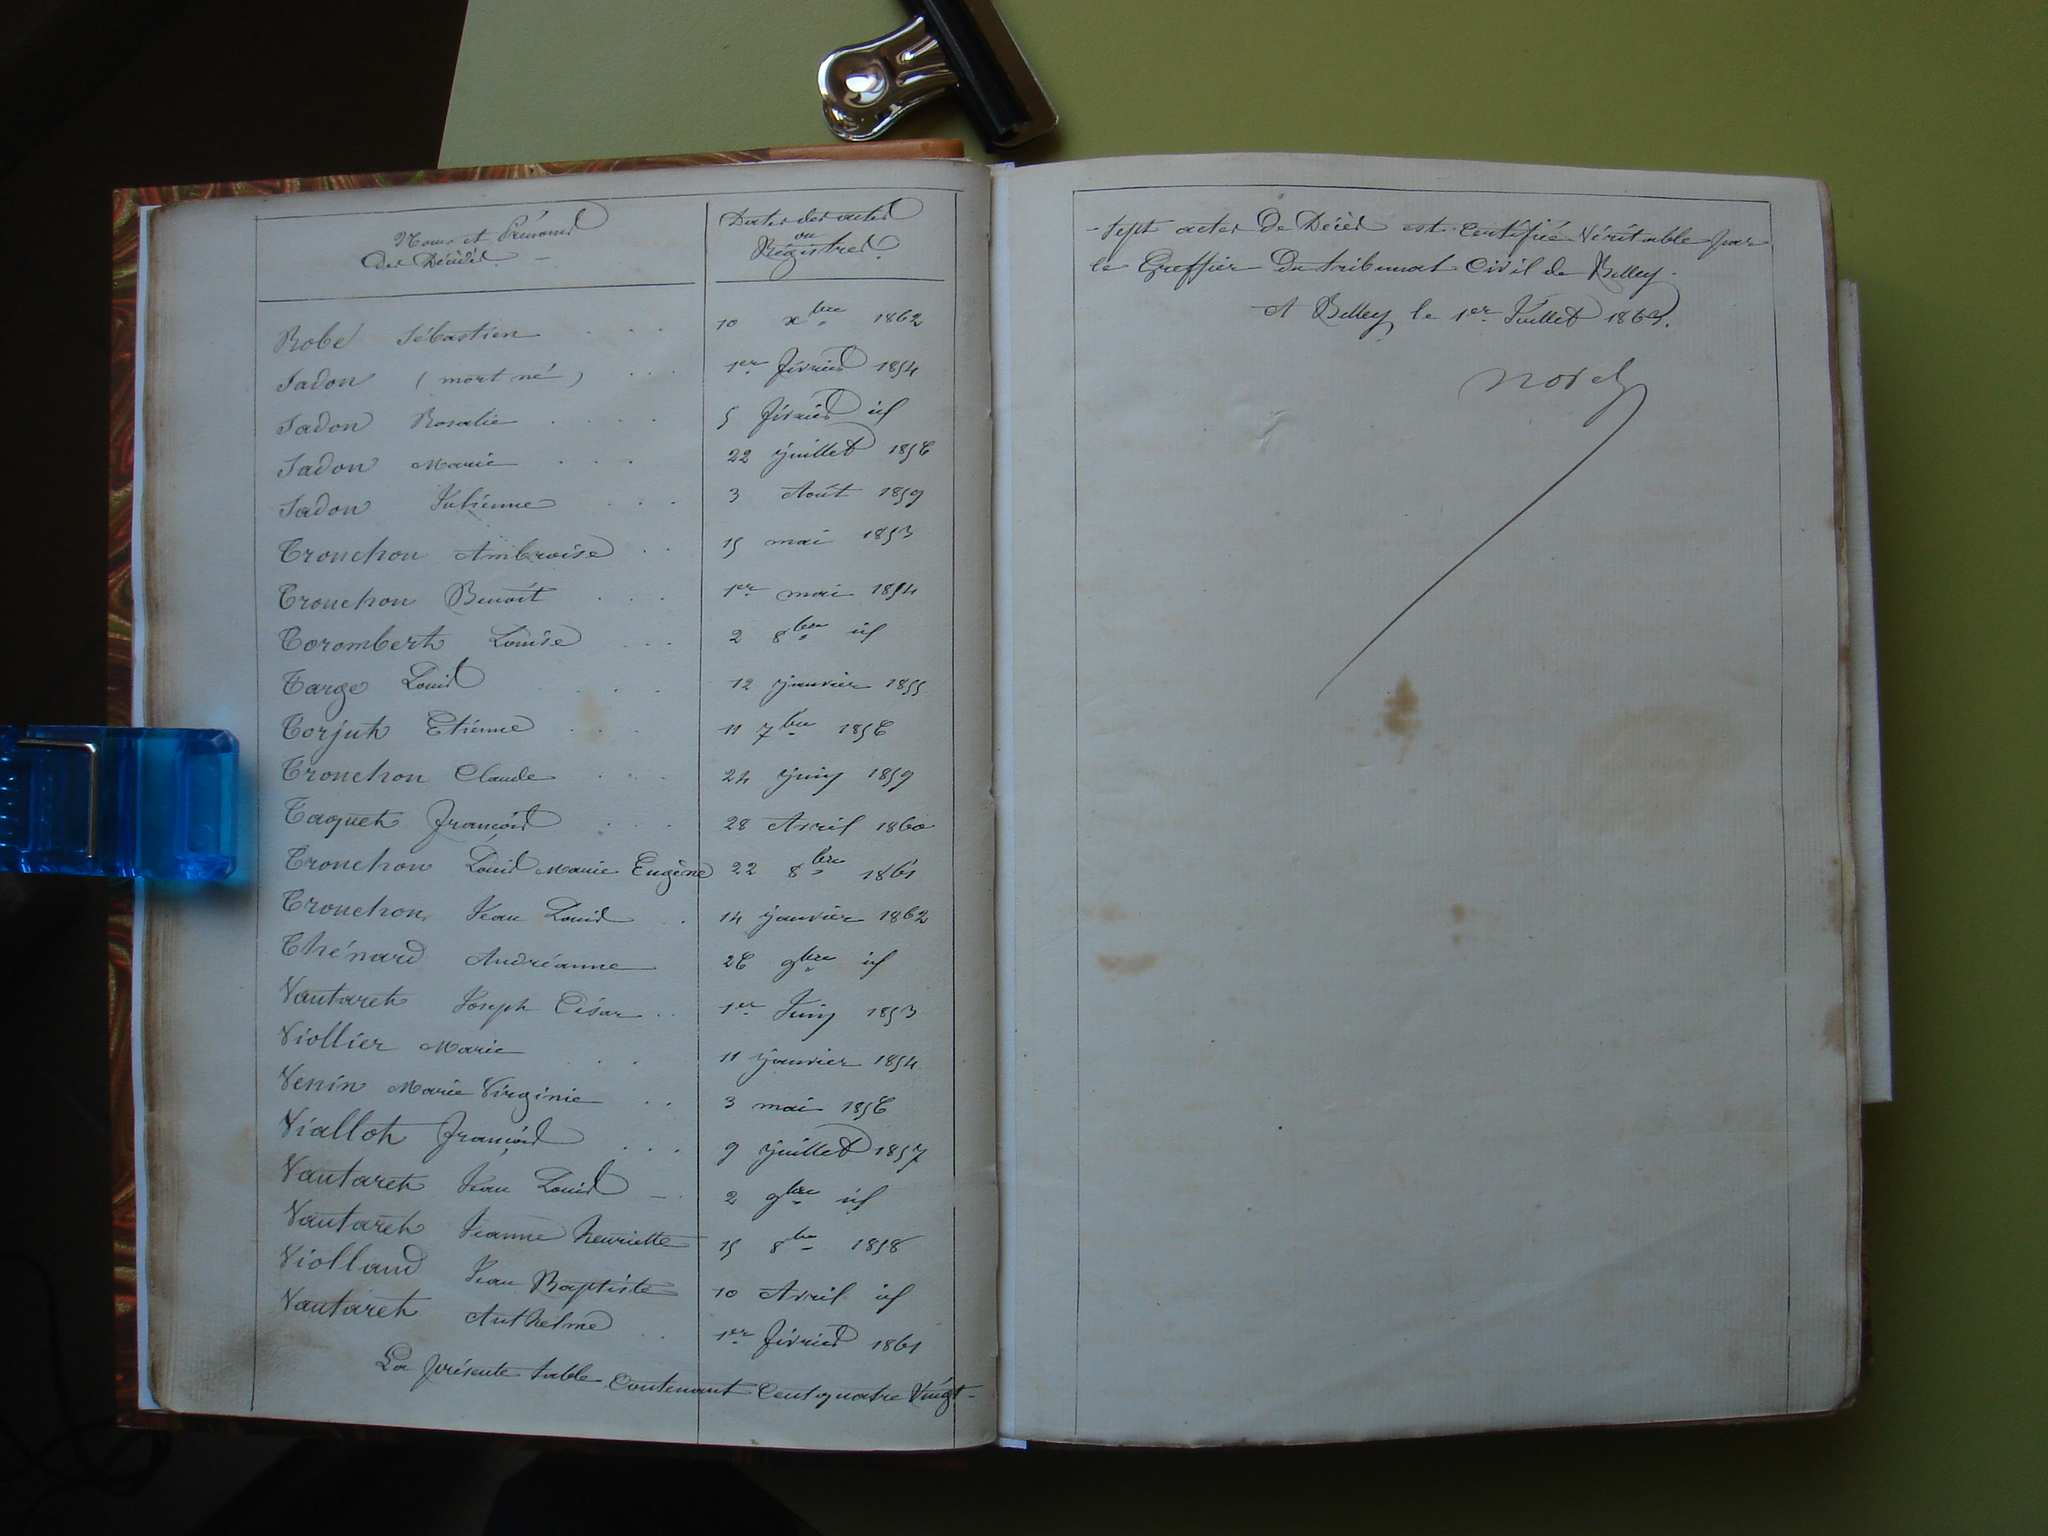 Noms et Prénoms
Des Décédés.
Dates des actes
ou
Régistres.
Robe Sébastien 10 xbre 1862
Sadon (mort né) 1er février 1854
Sadon Rosalie 5 février id
Sadon Marie 22 juillet 1856
Sadon Julienne 3 Août 1859
Tronchon Ambroise 15 mai 1853
Tronchon Benoît 1er mai 1854
Torombert Louise 2 8bre id
Targe Louis 12 janvier 1855
Torjut Etienne 11 7bre 1856
Tronchon Claude 24 juin 1859
Taquet François 28 Avril 1860
Tronchon Louis Marie Eugène 22 8bre 1861
Tronchon Jean Louis 14 janvier 1862
Thénard Andréanne 26 9bre id
Vautaret Joseph César 1er Juin 1853
Viollier Marie 11 janvier 1854
Venin Marie Virginie 3 mai 1856
Viallot François 9 juillet 1857
Vautaret Jean Louis 2 9bre id
Vautaret Jeanne henriette 15 8bre 1858
Violland Jean Baptiste 10 Avril id
Vautaret Anthelme 1er février 1861
La présente table Contenant Cent quatre Vingt-
-Sept actes de Décès est Certifiée Véritable par
le Greffier du tribunal Civil de Belley.
A Belley le 1er Juillet 1863.